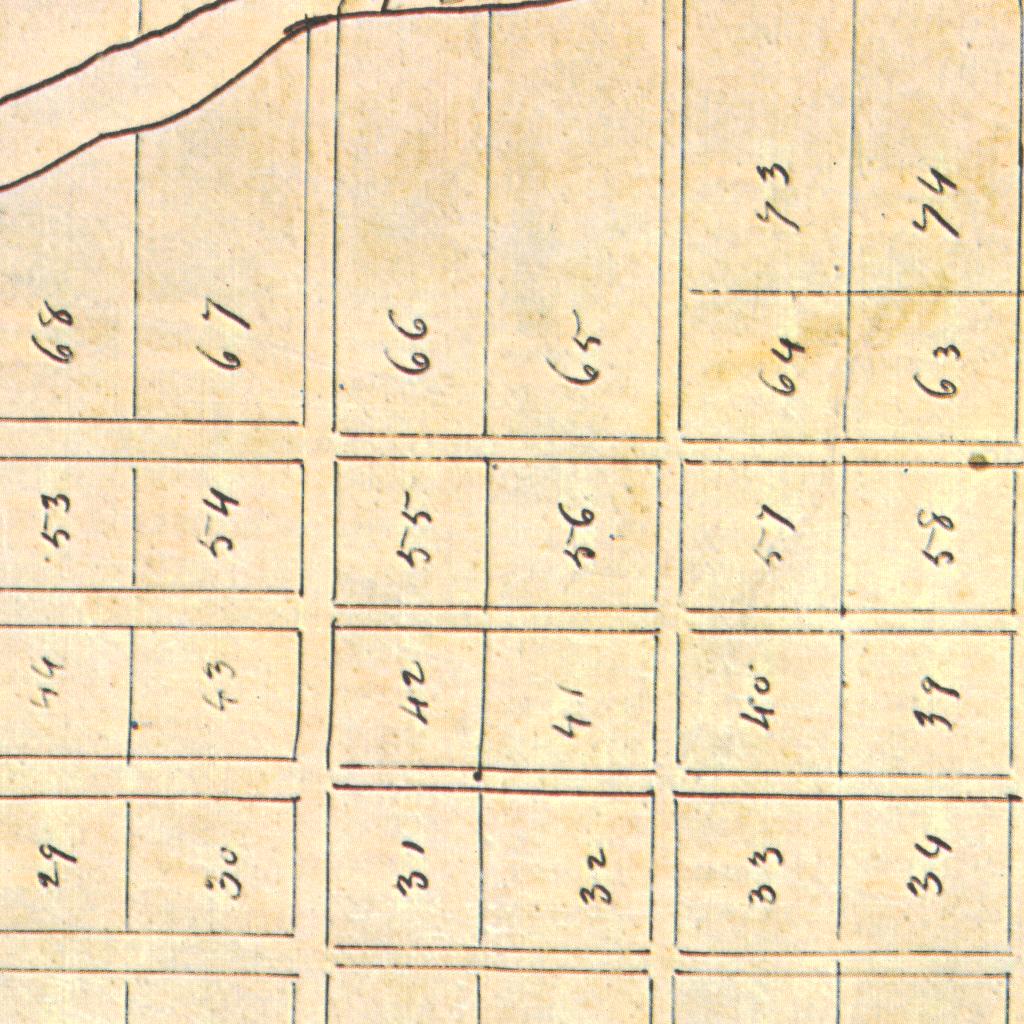 73
74
68
67
66
65
64
63
53
54
55
56
57
58
44
43
42
41
40
39
29
30
31
32
33
34